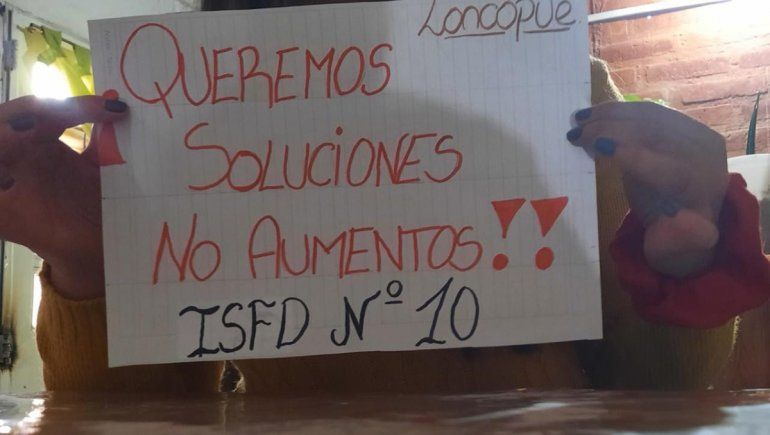 Loncopue
¡QUEREMOS
SOLUCIONES
NO AUMENTOS!!
ISFD Nº 10